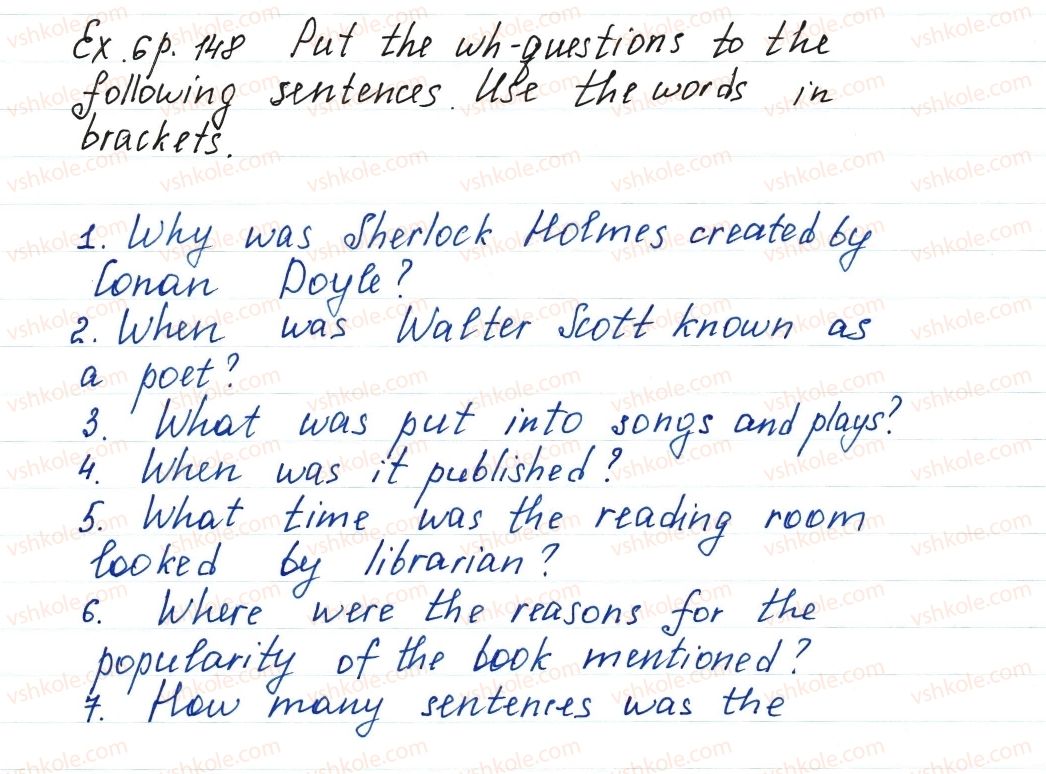 Ex. 6 p. 148 Put the wh-questions to the
following sentences. Use the words in
brackets.
1. Why was Sherlock Holmes created by
Conan Doyle?
2. When was Walter Scott known as
a poet?
3. What was put into songs and plays?
4. When was it published?
5. What time was the reading room
looked by librarian?
6. Where were the reasons for the
popularity of the book mentioned?
7. How many sentences was the